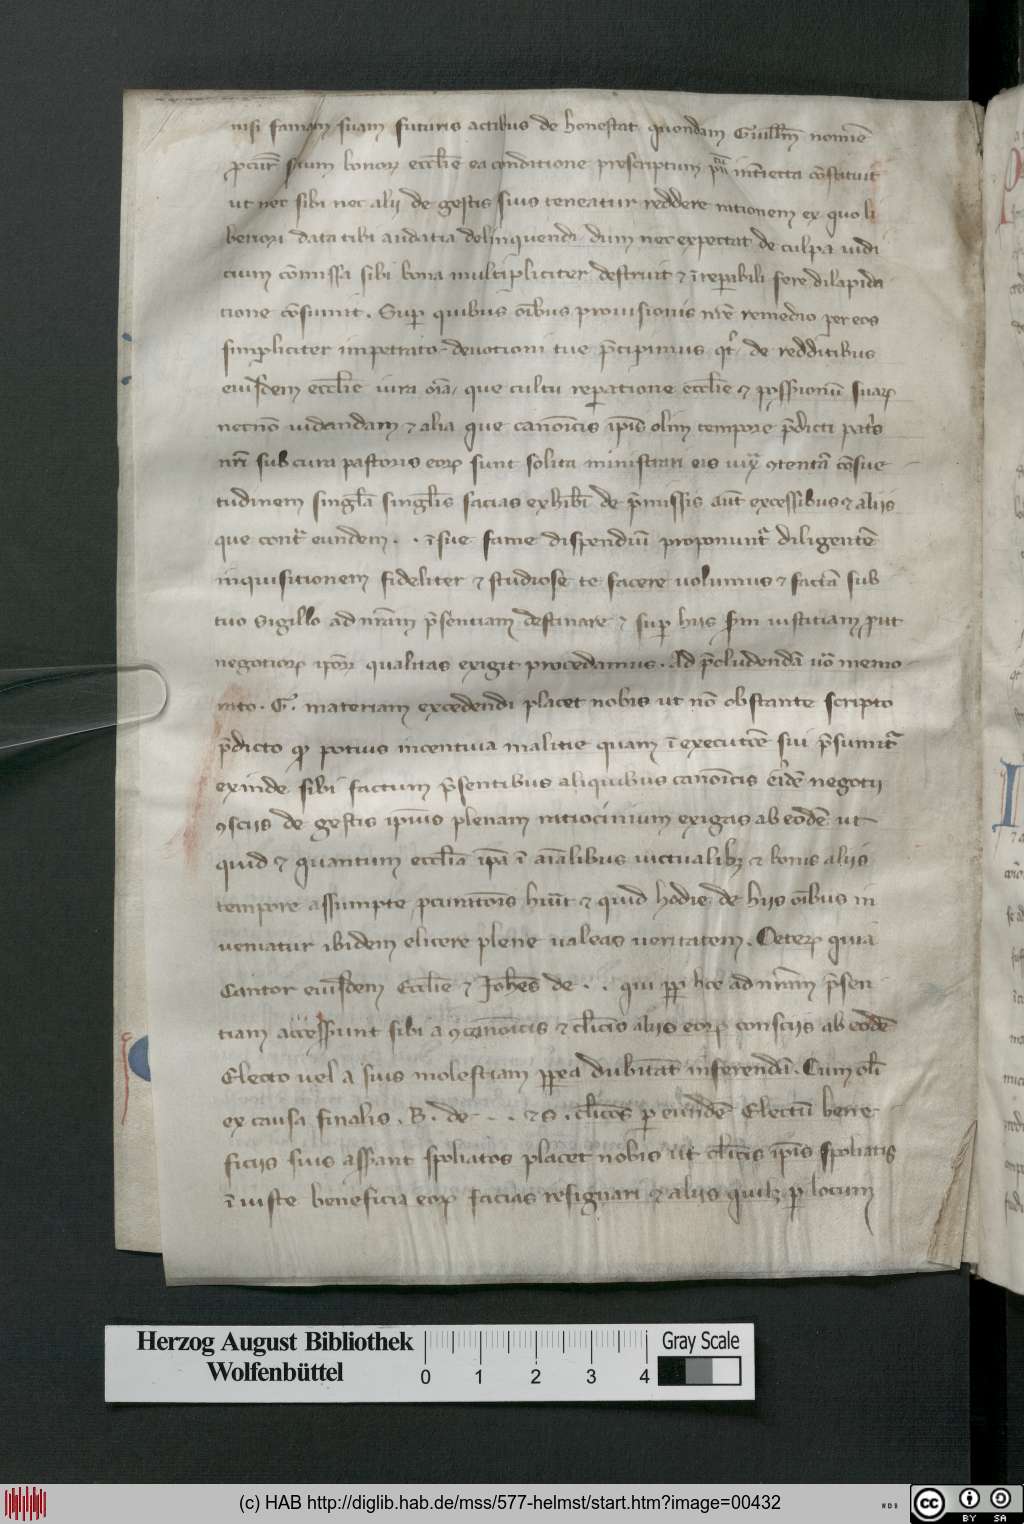 nisi famam suam futuris actibus de honestat quendam Guill̅m nomīe
p̱cur̅ suum bonor̲ eccl̅ie ea conditione prescriptum int̅iecta cōstituit
ut nec sibi nec alij de gestis suis teneatur reddere rationem ex quo li
beriori data tibi audatia delinquendi dum nec expectat de culpa iudi
cium cōmissa sibi bona multipliciter destruit ⁊ īrepabili fere dilapida
tione cōsumit. Sup quibus oībus prouisionis nr̅e remedio per eos
simpliciter impetrato deuotioni tue p̄cipimus qt̅ de redditibus
eiusdem eccl̅ie iura oīa, que cultu reparatione eccl̅ie ⁊ possessionū suar̲
necnō uidendam ⁊ alia que canoīcis ip̅is olim tempore p̄dicti pat̅s
nr̅i sub cura pastoris eor̲ sunt solita ministrari eis ꝯtentā cōsue
tudinem singl̅a singl̅is facias exhib̅i de p̄missis aut̅ excessibus ⁊ aliis
que cont̅ eundem . . ī sue fame dispendiū proponunt̅ diligentē
inquisitionem fideliter ⁊ studiose te facere uolumus ⁊ factā sub
tuo sigillo ad nr̅am p̄sentiam destinare ⁊ sup hiis s̅m iustitiam put
negotior̲ ip̅or̲ qualitas exigit procedamus. Ad p̄cludendā uō memo
rato . G. materiam excedendi placet nobis ut nō obstante scripto
p̄dicto qd potius incentiua malitie quam ī executōe sui p̄sumit̅
exinde sibi factum p̄sentibus aliquibus canoīcis eidē negotii
ꝯsciis de gestis ipsius plenam ratiocinium exigas ab eodē ut
quid ⁊ quantum eccl̅ia ip̅a ī aīalibus uictualib; ⁊ bonis aliis
tempore assumpte p̱curatōis hui̅t ⁊ quid hodie de hiis oībus in
ueniatur ibidem elicere plene ualeas ueritatem. Ceter̲ quia
Cantor eiusdem Eccl̅ie ⁊ Joh̅es de . . qui pp̱ h̅ec ad nr̅am p̄sen
tiam accesserunt sibi a ꝯcanoīcis ⁊ cl̅icis aliis eor̲ consciis ab eodē
Electo uel a suis molestiam pp̱ea dubitāt inferendā. Cum ol̅i
ex causa finalis . B. de . . ⁊ S . cl̅icos p̱ eundē Electū bene
ficiis suis asserant spoliatos placet nobis ut cl̅icis ip̅is spoliatis
ī iuste beneficia eor̲ facias resignari ⁊ aliis quilz p̱ locum
Herzog August Bibliothek
Wolfenbüttel
0 1 2 3 4
Gray Scale
(c) HAB http://diglib.hab.de/mss/577-helmst/start.htm?image=00432
WDB
cc
BY SA